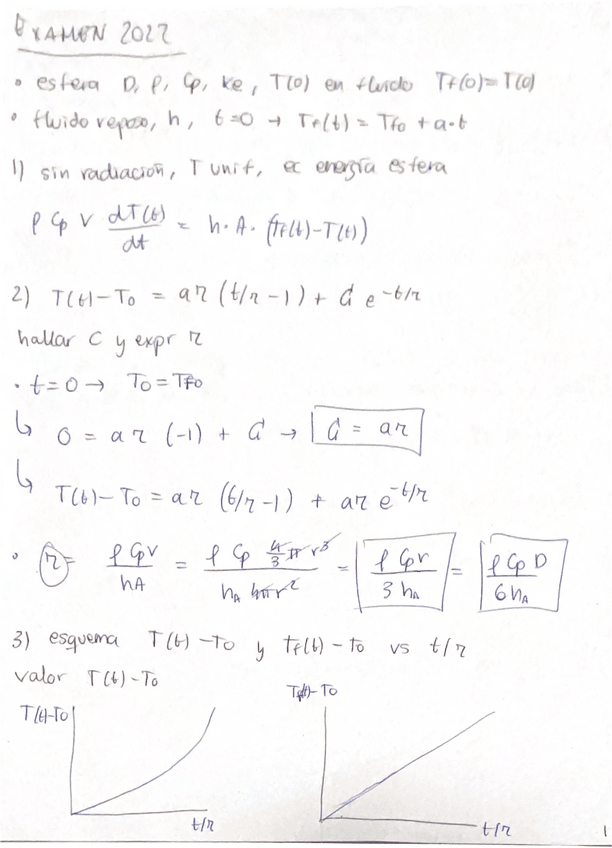 EXAMEN 2022
• esfera D, ρ, Cp, ke, T(0) en fluido Tf(0)=T(0)
• fluido reposo, h, t=0 → Tf(t) = Tf0 + a·t
1) sin radiación, T unif, ec energía esfera
ρ Cp V dT(t)/dt = h·A·(Tf(t)-T(t))
2) T(t)-T0 = aτ (t/τ -1) + C e^-t/τ
hallar C y expr τ
• t=0 → T0=Tf0
↳ 0 = aτ (-1) + C → C = aτ
↳ T(t)-T0 = aτ (t/τ -1) + aτ e^-t/τ
• τ = ρCpV/hA = ρ Cp 4/3 π r³ / hA 4πr² = ρ Cp r / 3 hA = ρ Cp D / 6 hA
3) esquema T(t)-T0 y Tf(t)-T0 vs t/τ
valor T(t)-T0
T(t)-T0
t/τ
Tf(t)-T0
t/τ
1